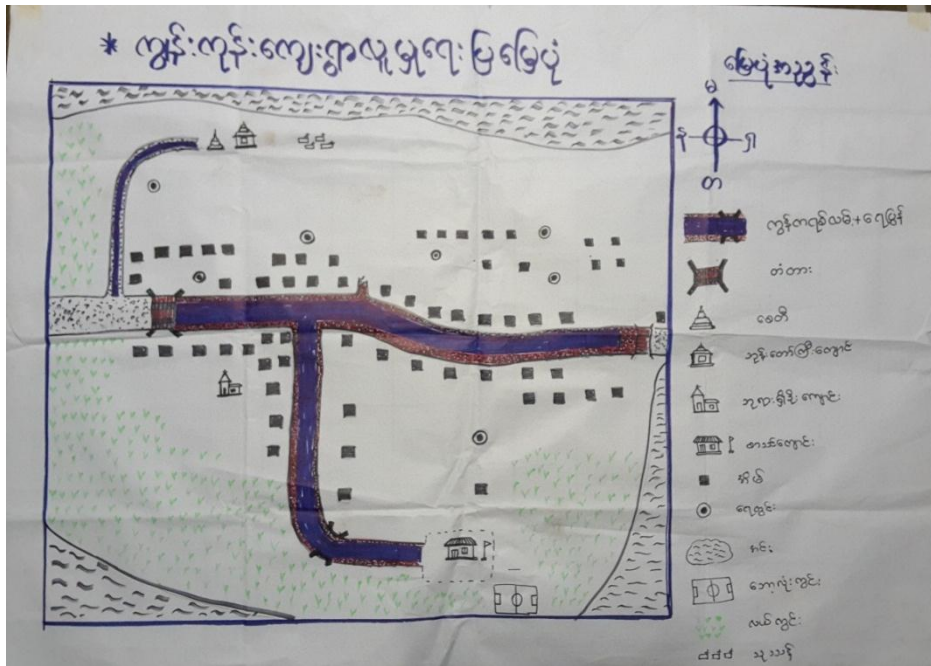 * ကျွန်းကုန်းကျေးရွာလူမှုရေးပြမြေပုံ
မြေပုံအညွှန်း
မ
န
ရှ
တ
ကွန်ကရစ်လမ်း+ရေမြောင်း
တံတား
စေတီ
ဘုန်းတော်ကြီးကျောင်း
ဘုရားရှိခိုးကျောင်း
စာသင်ကျောင်း
အိမ်
ရေတွင်း
အင်း
ဘောလုံးကွင်း
လယ်ကွင်း
သုသာန်